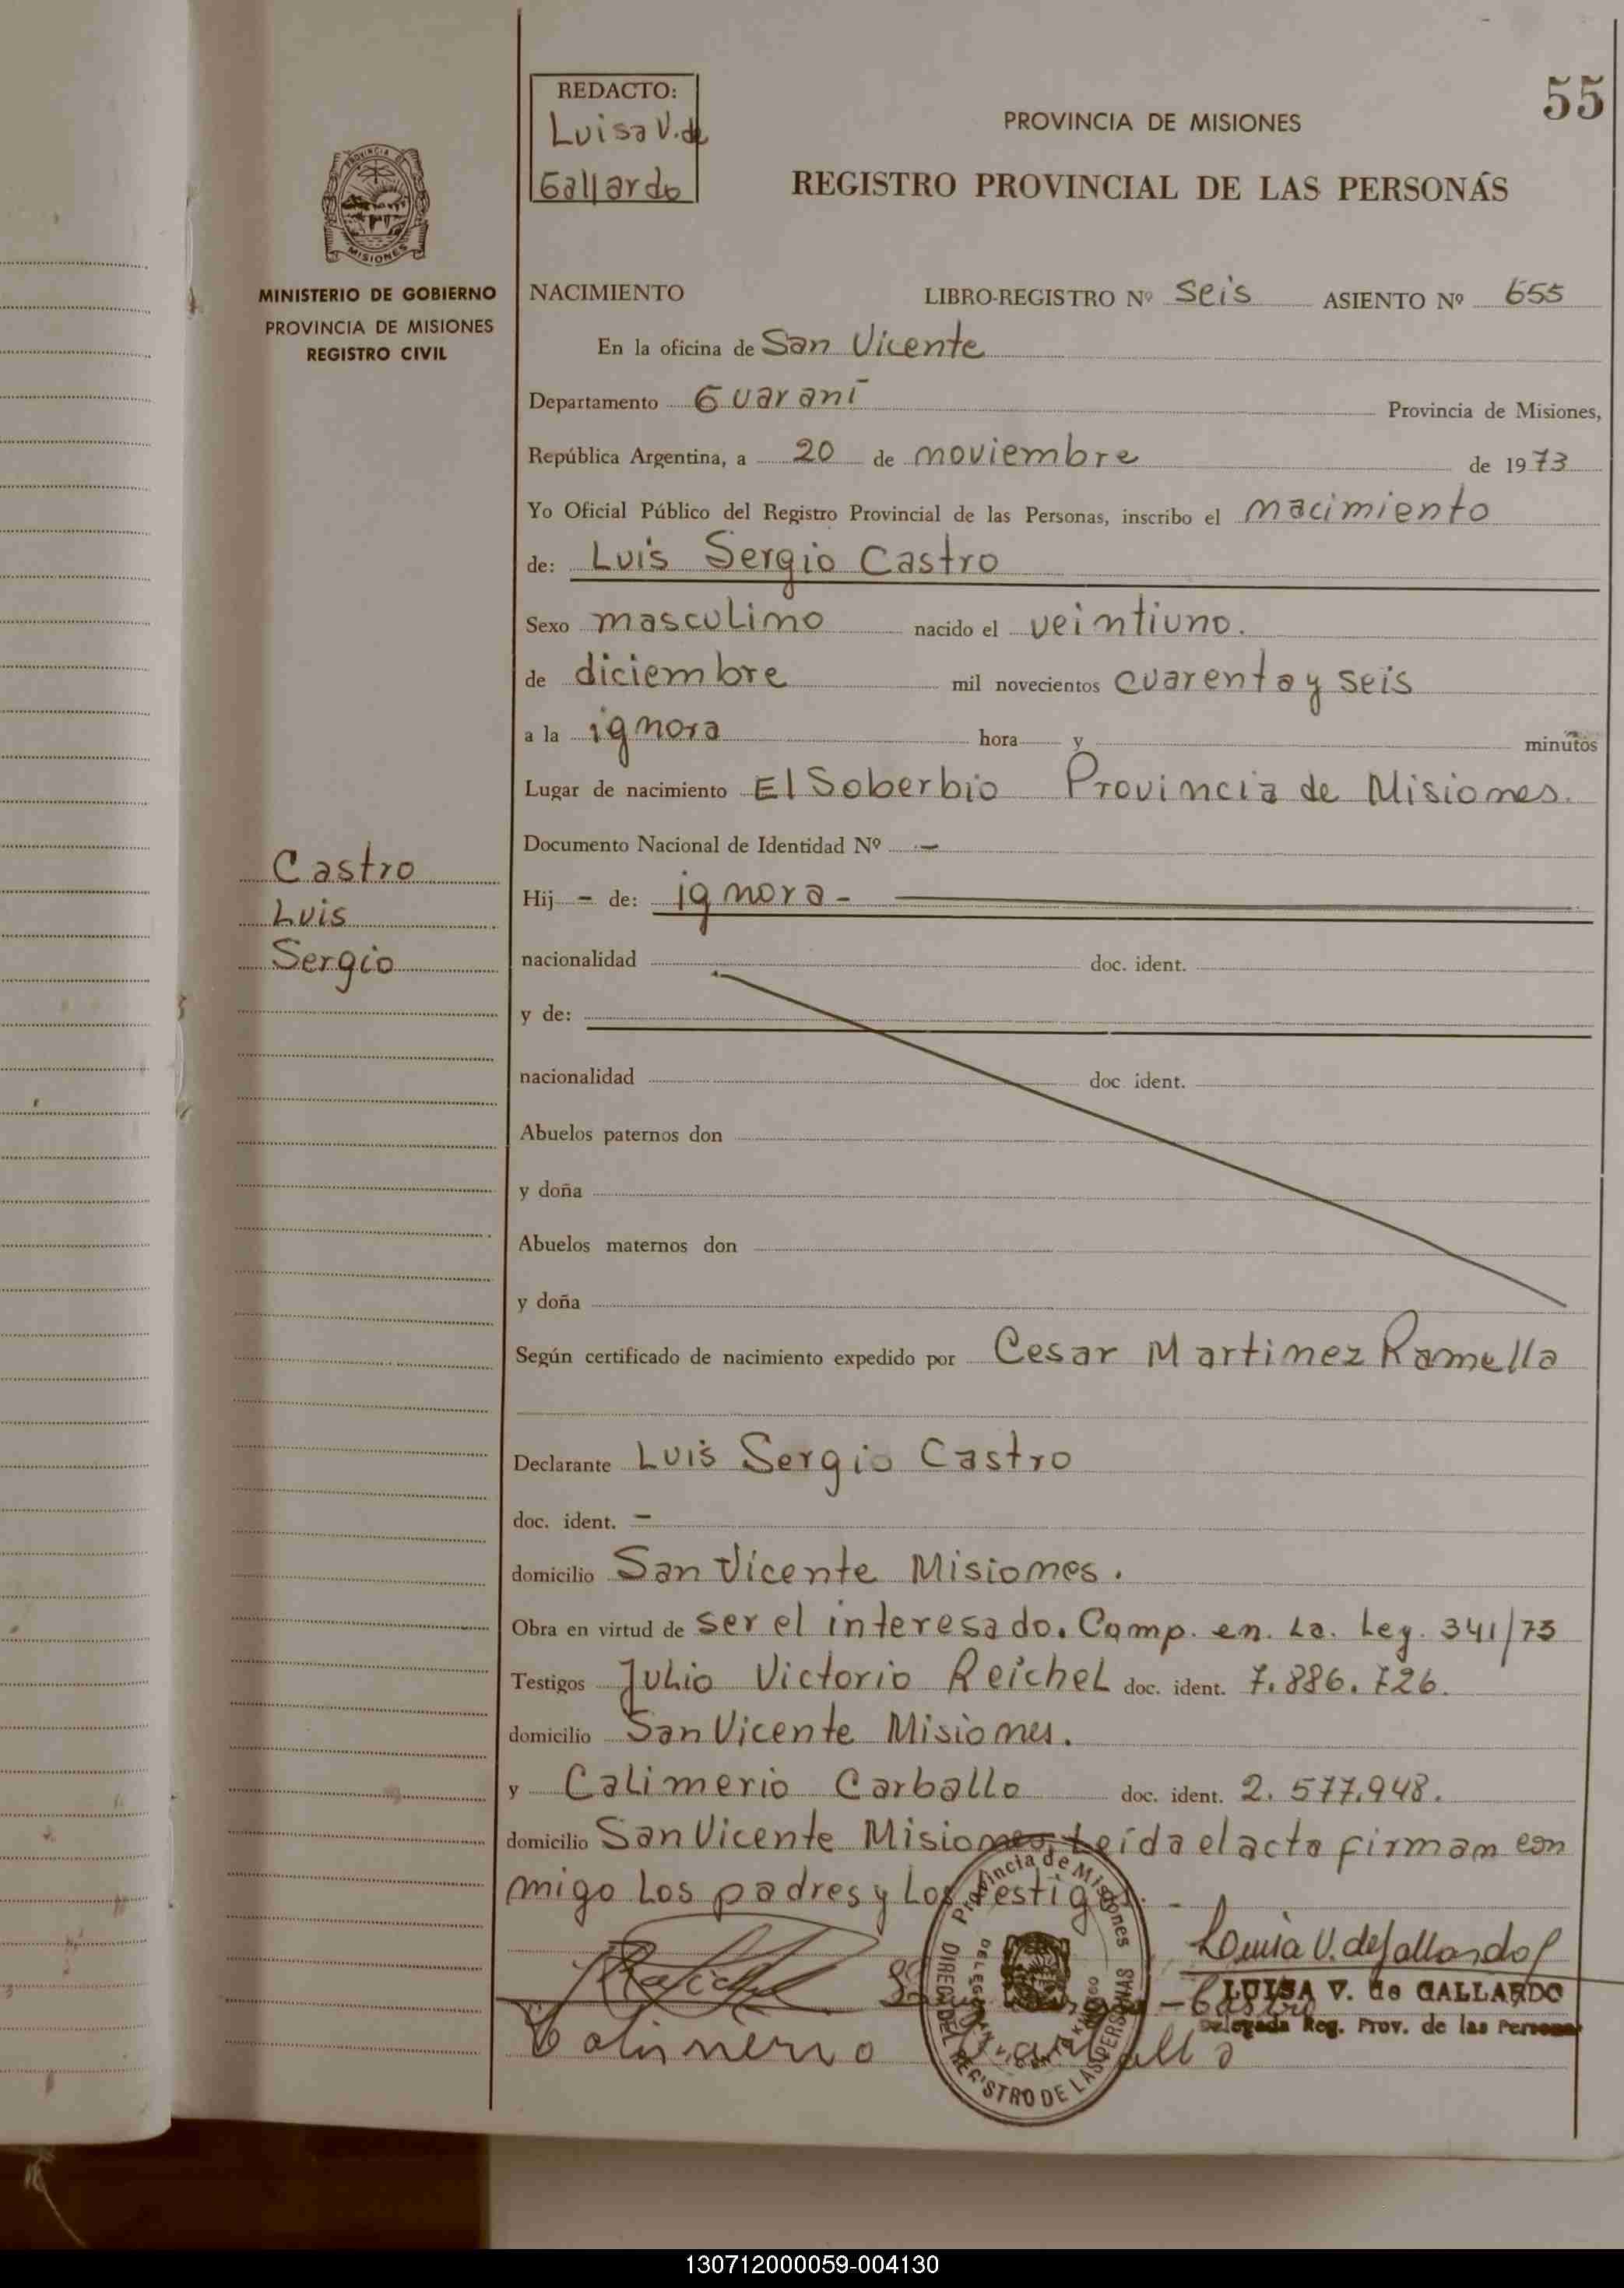 REDACTO:
Luisa V. de
Gallardo
55
PROVINCIA DE MISIONES
REGISTRO PROVINCIAL DE LAS PERSONAS
MISIONES
MINISTERIO DE GOBIERNO
PROVINCIA DE MISIONES
REGISTRO CIVIL
NACIMIENTO LIBRO-REGISTRO Nº seis ASIENTO Nº 655
En la oficina de San Vicente
Departamento Guaraní Provincia de Misiones,
República Argentina, a 20 de noviembre de 1973
Yo Oficial Público del Registro Provincial de las Personas, inscribo el nacimiento
de: Luis Sergio Castro
Sexo masculino nacido el veintiuno.
de diciembre mil novecientos cuarenta y seis
a la ignora hora y minutos
Lugar de nacimiento El Soberbio Provincia de Misiones.
Documento Nacional de Identidad Nº —
Castro
Luis
Sergio
Hij - de: ignora -
nacionalidad doc. ident.
y de:
nacionalidad doc. ident.
Abuelos paternos don
y doña
Abuelos maternos don
y doña
Según certificado de nacimiento expedido por Cesar Martinez Ramella
Declarante Luis Sergio Castro
doc. ident. —
domicilio San Vicente Misiones.
Obra en virtud de ser el interesado. Comp. en. La. Ley. 341/73
Testigos Julio Victorio Reichel doc. ident. 7.886.726.
domicilio San Vicente Misiones.
y Calimerio Carballo doc. ident. 2.577.948.
domicilio San Vicente Misiones, Leída el acta firman con
migo Los padres y Los testigos. -
Luisa V. de Gallardo
Castro
LUISA V. de GALLARDO
Delegada Reg. Prov. de las Personas
Calimerio Carballo
Provincia de Misiones
DIREC. DEL REGISTRO DE LAS PERSONAS
130712000059-004130